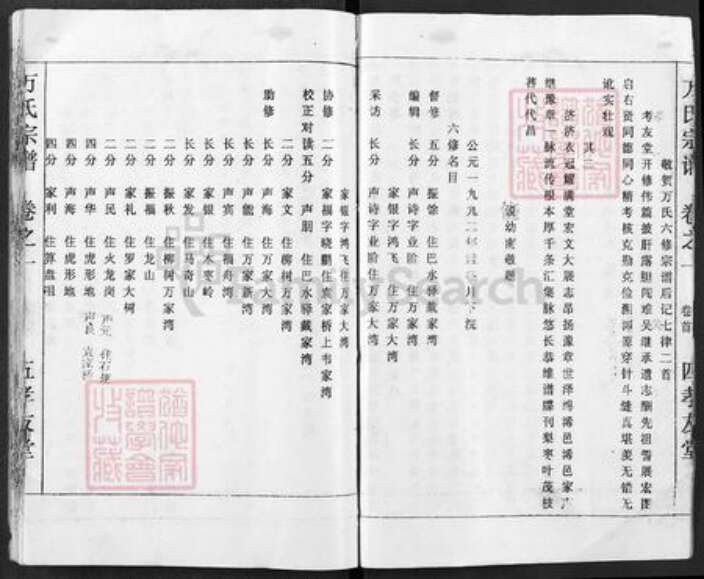 万氏宗谱 卷之一 卷首 四 孝友堂
敬贺万氏六修宗谱后记七律二首
考友堂开修伟篇披肝露胆闯难关继承遗志酬先祖誓展宏图
启右贤同德同心精考核克勤克俭溯源穿针斗缝真堪羡无错无
讹实壮观
其二
济济衣冠耀满堂宏文大展志昂扬豫章世泽绵浠邑浠邑家声
继豫章一脉流传根本厚千条汇集脉悠长恭维谱牒刊梨枣叶茂枝
蕃代代昌
幼南敬题
公元一九九二年
六修名目
督修 五分 振馀 住巴水驿戴家湾
编辑 长分 声诗字业阶 住万家大湾
家银字鸿飞 住万家大湾
采访 长分 声诗字业阶 住万家大湾
家银字鸿飞 住万家大湾
协修 二分 家福字晓鹏 住袁家桥上韦家湾
校正对读 五分 声朋 住巴水驿戴家湾
二分 家文 住柳树万家湾
助修 长分 声海 住万家大湾
长分 声能 住万家新湾
长分 声宾 住福舟湾
长分 家银 住木枣岭
长分 家发 住马奇山
二分 振秋 住柳树万家湾
二分 振福 住龙山
二分 家礼 住罗家大树
二分 声民 住火龙岗
四分 声华 住虎形地
四分 声海 住虎形地
四分 家利 住算盘咀
声元 住石
声良 袁家桥
万氏宗谱 卷之一 五 孝友堂
FamilySearch